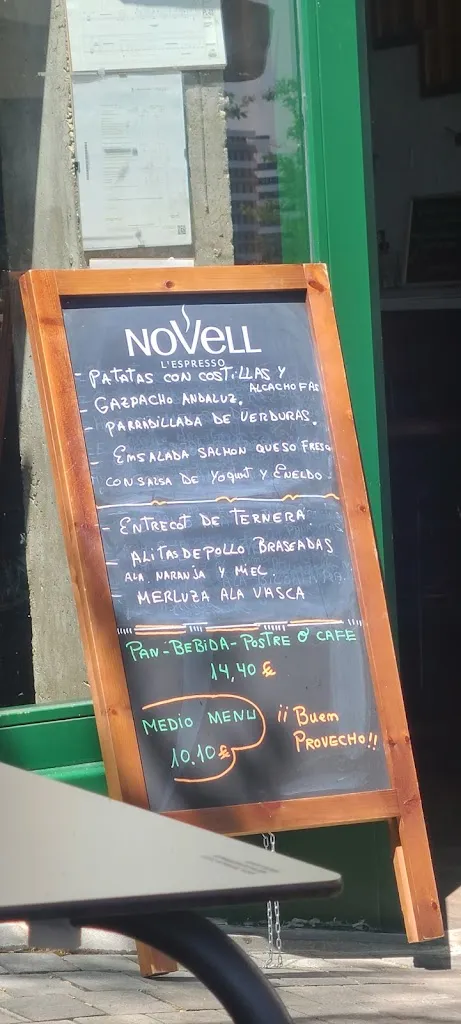 NOVELL
L'ESPRESSO
- PATATAS CON COSTILLAS Y
ALCACHOFAS
- GAZPACHO ANDALUZ.
- PARRIDILLADA DE VERDURAS.
- EMSALADA SALMON QUESO FRESO
CON SALSA DE YOGURT Y ENELDO.
- ENTRECOT DE TERNERA.
- ALITAS DE POLLO BRASEADAS
ALA NARANJA Y MIEL.
- MERLUZA ALA VASCA
PAN-BEBIDA-POSTRE O CAFE
14,40 €
MEDIO MENU
10.10 €
¡¡ BUEM
PROVECHO!!